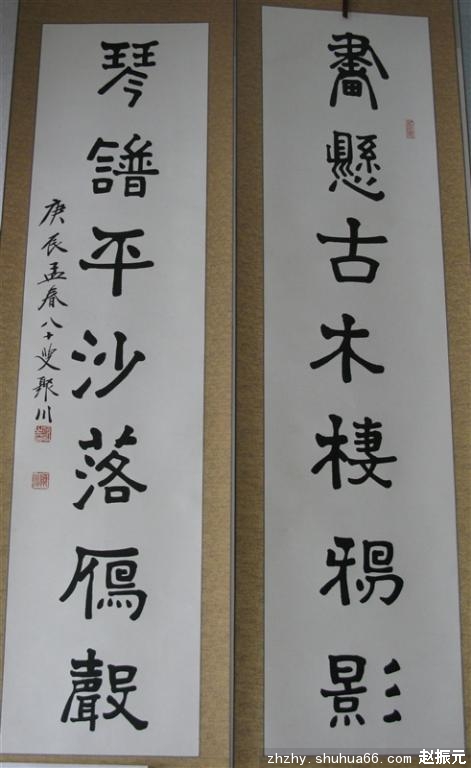 畫懸古木棲鴉影
琴譜平沙落鴈聲
庚辰孟春八十叟聚川
zhzhy.shuhua66.com 赵振元